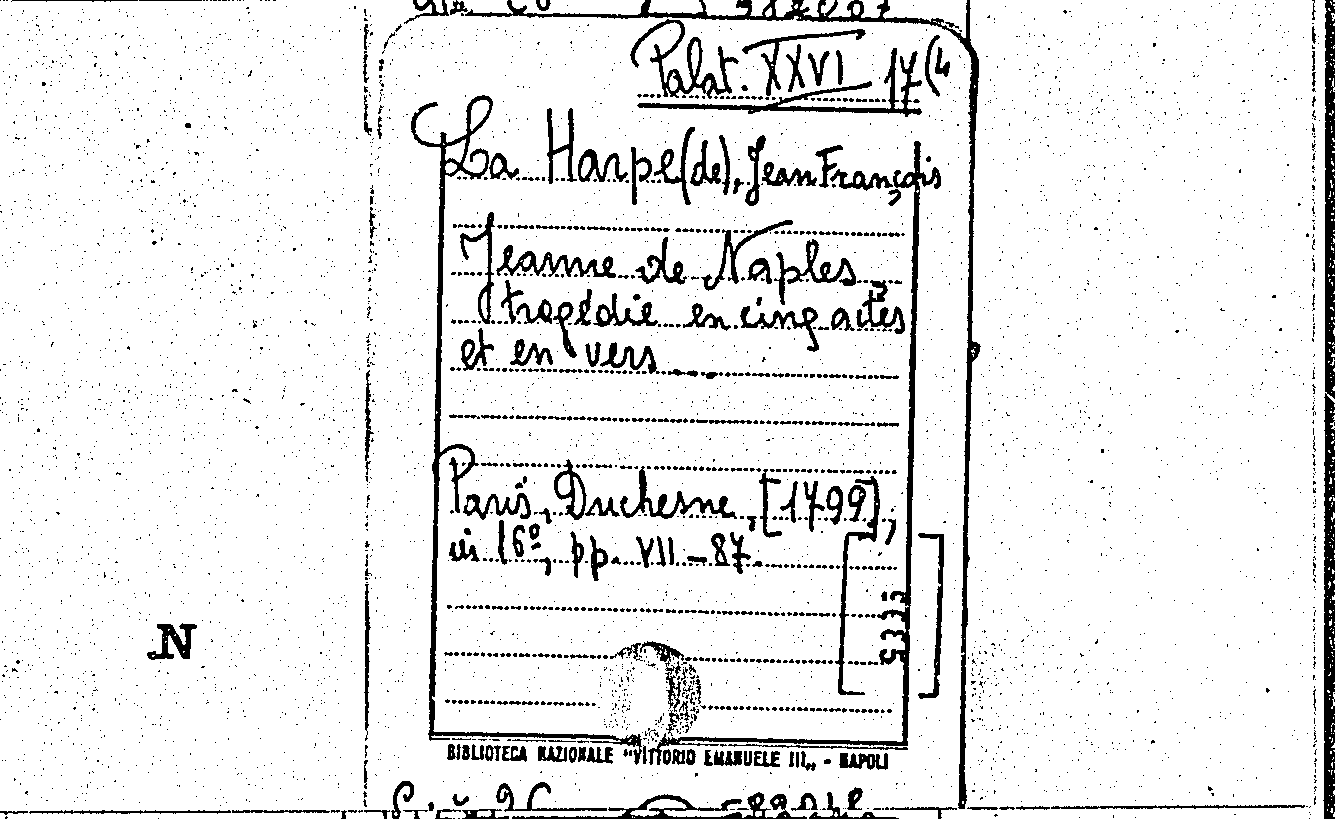 Palat. XXVI 17(4
La Harpe(de), Jean François
Jeanne de Naples
tragédie en cinq actes
et en vers ....
Paris, Duchesne, [1799],
in 16º, pp. VII-87.
N
BIBLIOTECA NAZIONALE "VITTORIO EMANUELE III„ - NAPOLI